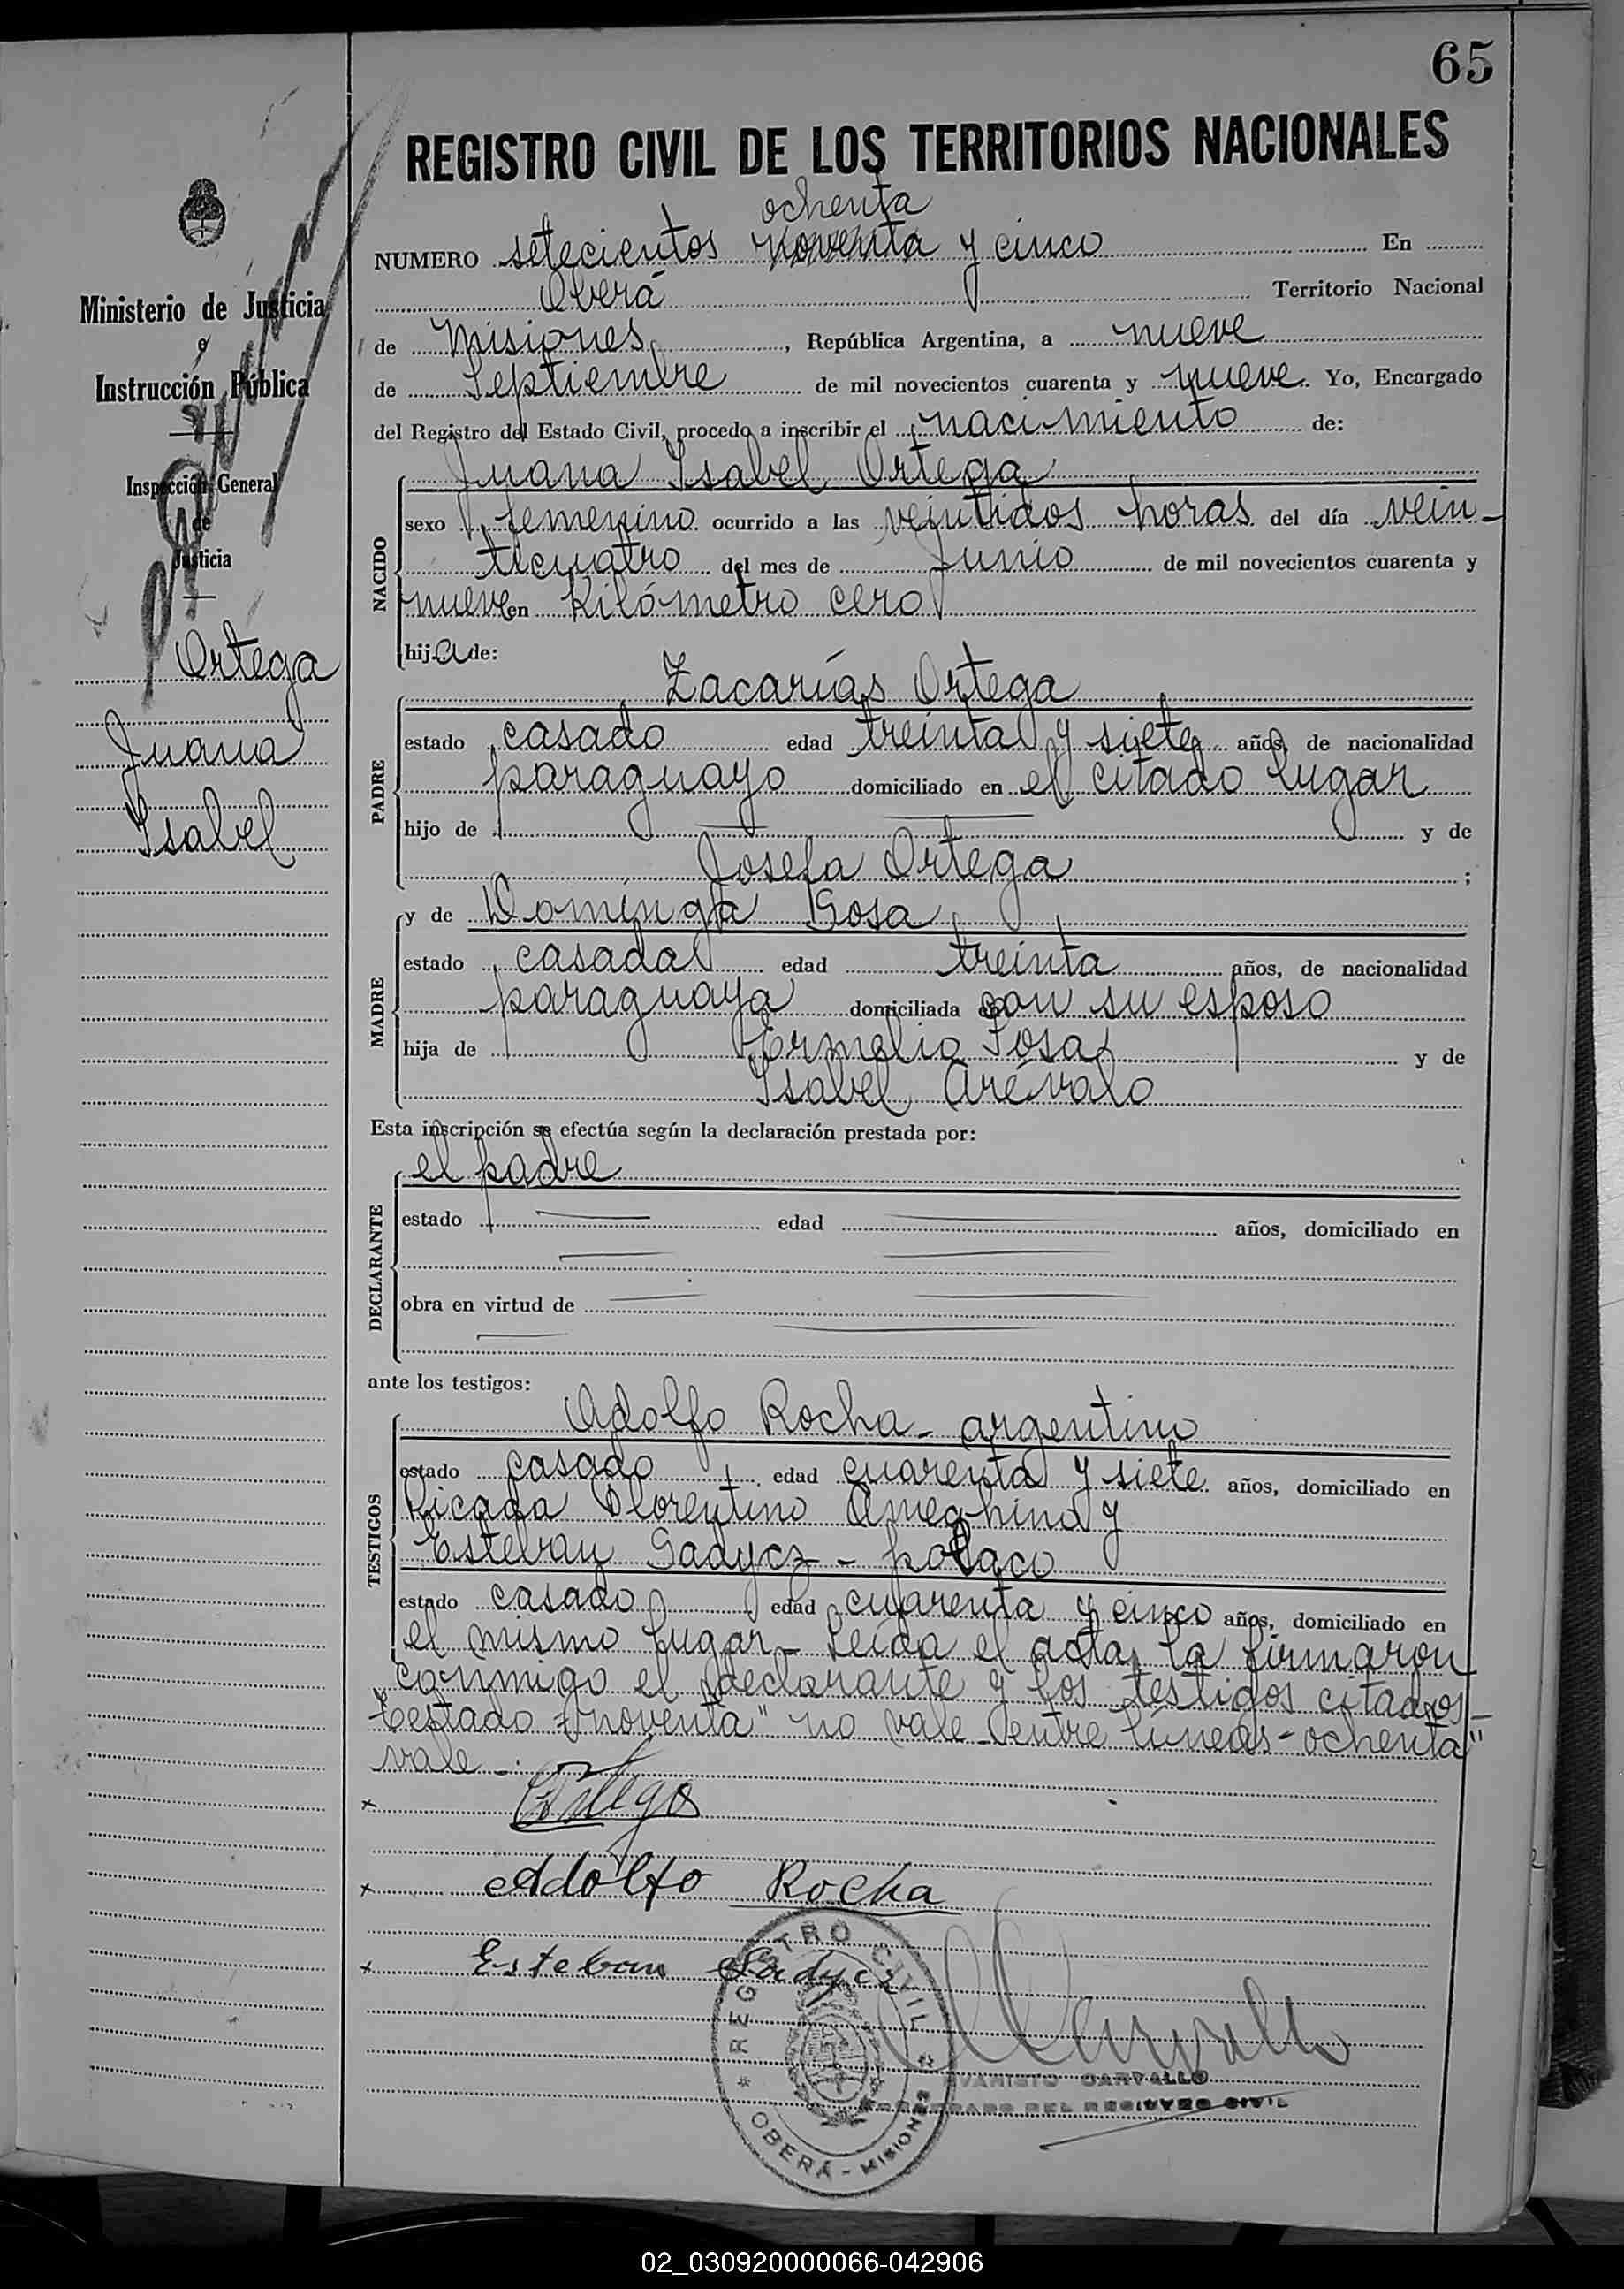 65
REGISTRO CIVIL DE LOS TERRITORIOS NACIONALES
ochenta
NUMERO setecientos noventa y cinco En
Oberá Territorio Nacional
de Misiones, República Argentina, a nueve
de Septiembre de mil novecientos cuarenta y nueve. Yo, Encargado
del Registro del Estado Civil, procedo a inscribir el nacimiento de:
Juana Isabel Ortega
NACIDO
sexo femenino ocurrido a las veintidos horas del día vein-
ticuatro del mes de Junio de mil novecientos cuarenta y
nueve en Kilómetro cero
hija de:
Zacarías Ortega
PADRE
estado casado edad treinta y siete años, de nacionalidad
paraguayo domiciliado en el citado lugar
hijo de y de
Josefa Ortega ;
y de Dominga Sosa
MADRE
estado casada edad treinta años, de nacionalidad
paraguaya domiciliada con su esposo
hija de Sosa y de
Isabel Arévalo
Esta inscripción se efectúa según la declaración prestada por:
el padre
DECLARANTE
estado edad años, domiciliado en
obra en virtud de
ante los testigos:
Adolfo Rocha - argentino
TESTIGOS
estado casado edad cuarenta y siete años, domiciliado en
Picada Florentino Ameghino y
Esteban Sadycz - polaco
estado casado edad cuarenta y cinco años, domiciliado en
el mismo lugar - Leída el acta, la firmaron
conmigo el declarante y los testigos citados -
Testado - "noventa" no vale - entre líneas - ochenta"
vale -
x Ortega
x Adolfo Rocha
x Esteban Sadycz
Carvallo
EVARISTO CARVALLO
ENCARGADO DEL REGISTRO CIVIL
* REGISTRO CIVIL *
OBERÁ - MISIONES
Ministerio de Justicia
e
Instrucción Pública
Inspección General
de
Justicia
Ortega
Juana
Isabel
02_030920000066-042906